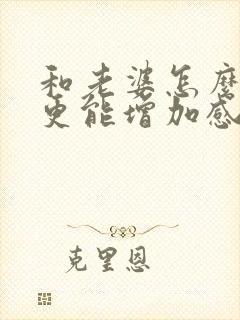 和老婆怎麼
更能增加感
克里恩